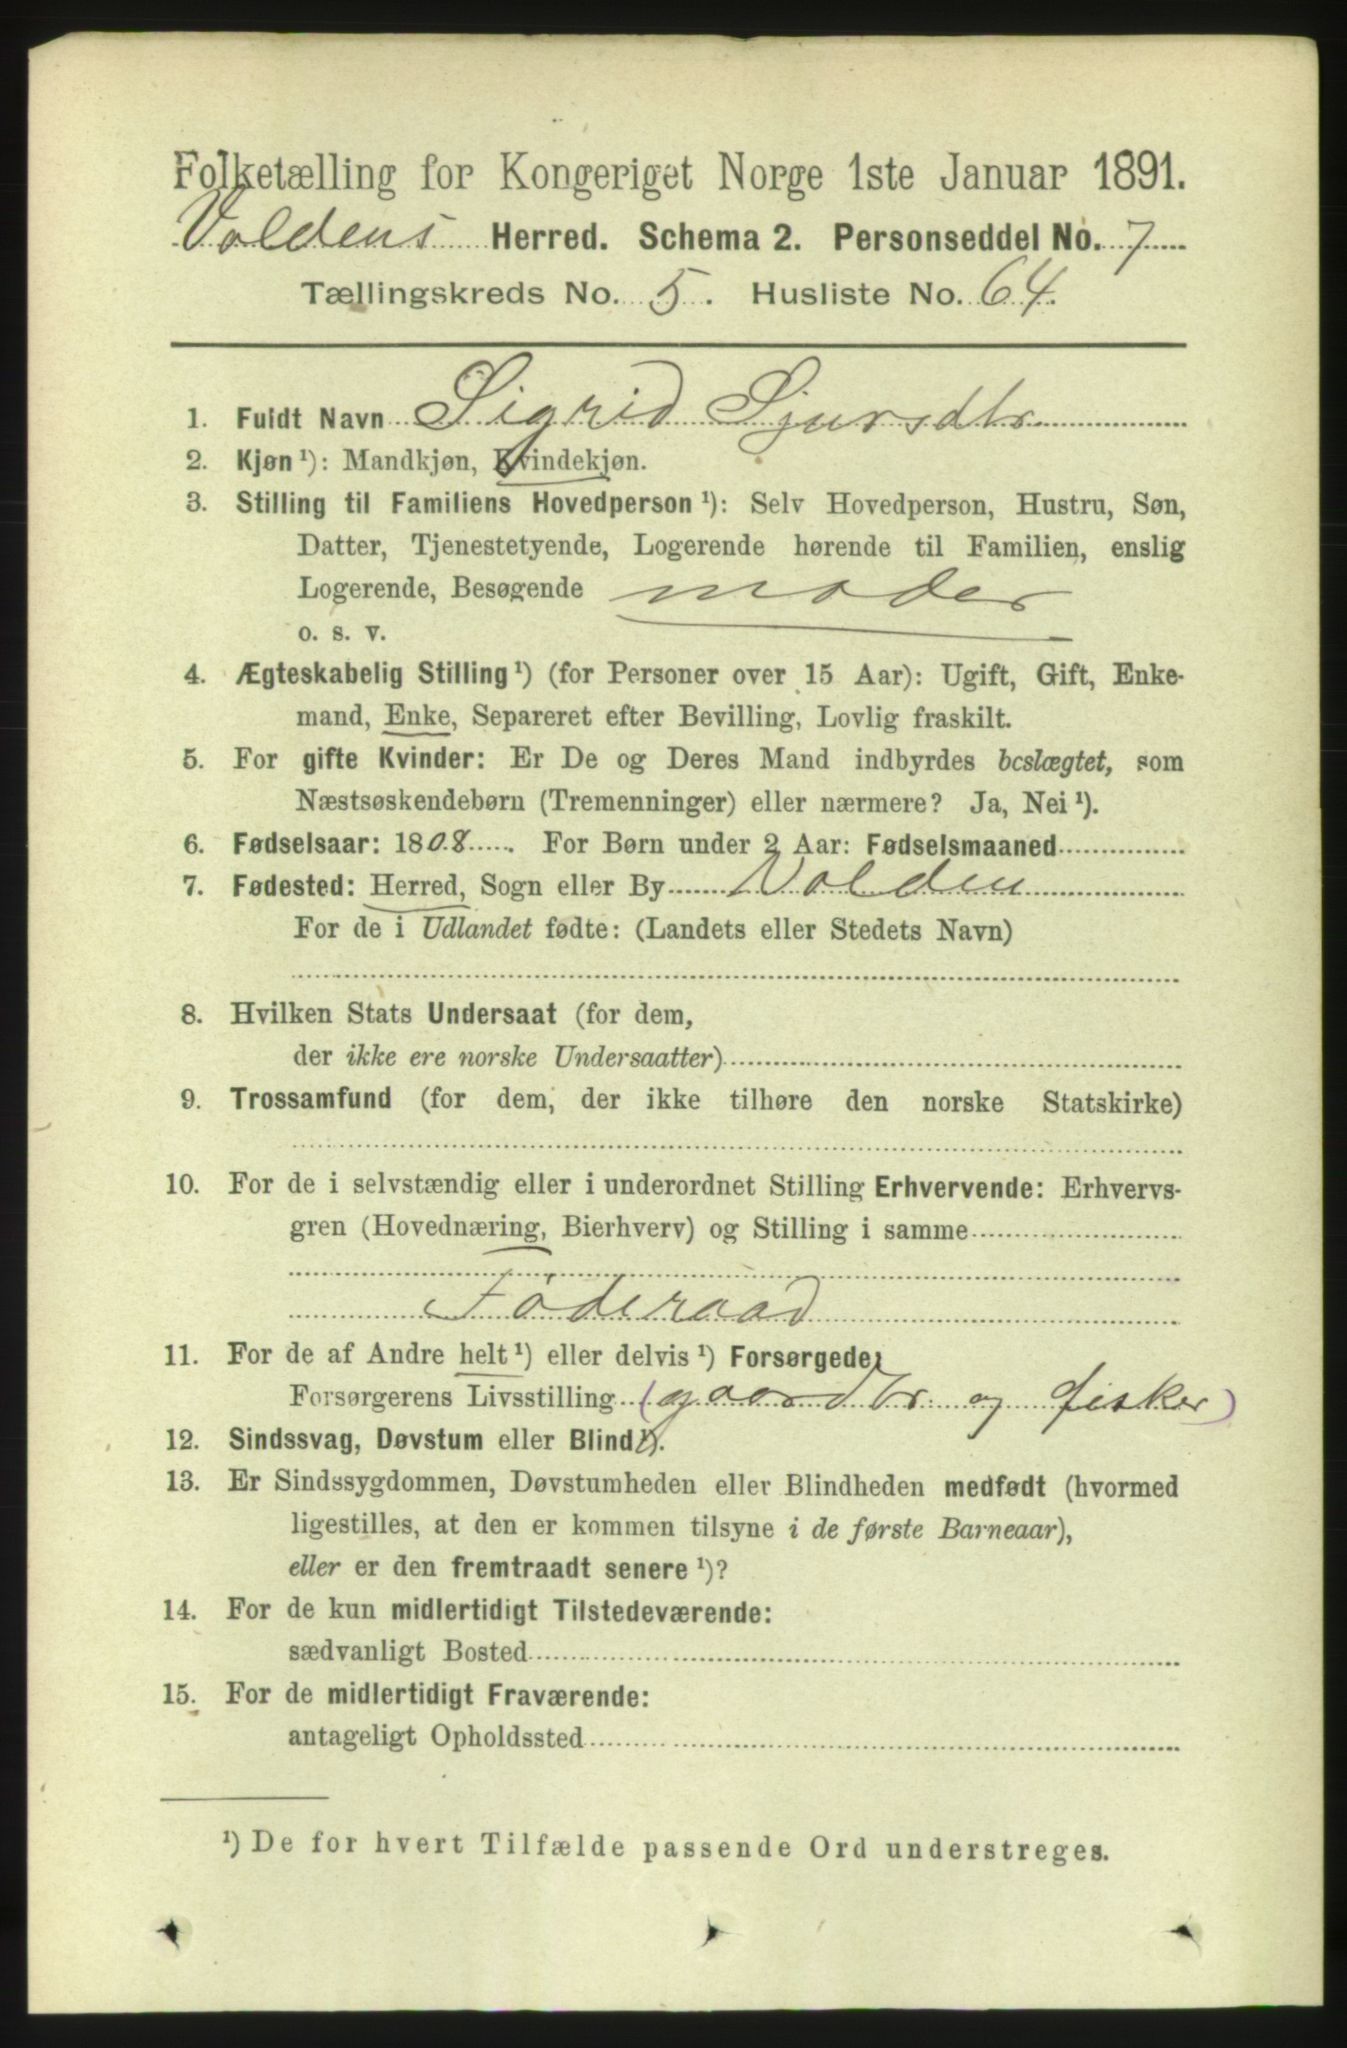 Folketælling for Kongeriget Norge 1ste Januar 1891.
Voldens Herred. Schema 2. Personseddel No. 7
Tællingskreds No. 5. Husliste No. 64.
1. Fuldt Navn Sigrid Sjursdtr.
2. Kjøn¹): Mandkjøn, Kvindekjøn.
3. Stilling til Familiens Hovedperson¹): Selv Hovedperson, Hustru, Søn,
Datter, Tjenestetyende, Logerende hørende til Familien, enslig
Logerende, Besøgende moder
o. s. v.
4. Ægteskabelig Stilling¹) (for Personer over 15 Aar): Ugift, Gift, Enke-
mand, Enke, Separeret efter Bevilling, Lovlig fraskilt.
5. For gifte Kvinder: Er De og Deres Mand indbyrdes beslægtet, som
Næstsøskendebørn (Tremenninger) eller nærmere? Ja, Nei¹).
6. Fødselsaar: 1808. For Børn under 2 Aar: Fødselsmaaned
7. Fødested: Herred, Sogn eller By Volden
For de i Udlandet fødte: (Landets eller Stedets Navn)
8. Hvilken Stats Undersaat (for dem,
der ikke ere norske Undersaatter)
9. Trossamfund (for dem, der ikke tilhøre den norske Statskirke)
10. For de i selvstændig eller i underordnet Stilling Erhvervende: Erhvervs-
gren (Hovednæring, Bierhverv) og Stilling i samme
Føderaad
11. For de af Andre helt¹) eller delvis¹) Forsørgede:
Forsørgerens Livsstilling (gaardbr. og fisker)
12. Sindssvag, Døvstum eller Blind¹).
13. Er Sindssygdommen, Døvstumheden eller Blindheden medfødt (hvormed
ligestilles, at den er kommen tilsyne i de første Barneaar),
eller er den fremtraadt senere¹)?
14. For de kun midlertidigt Tilstedeværende:
sædvanligt Bosted
15. For de midlertidigt Fraværende:
antageligt Opholdssted
¹) De for hvert Tilfælde passende Ord understreges.